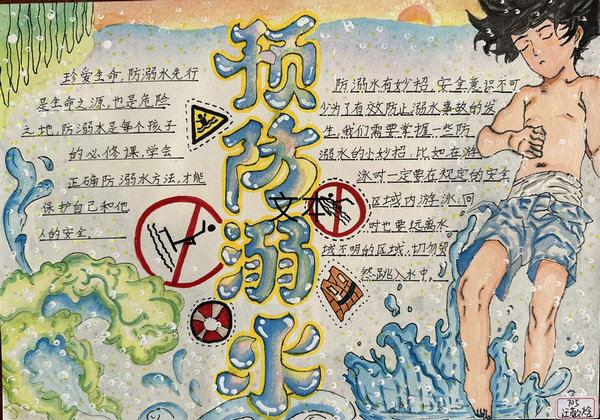 预防溺水
珍爱生命,防溺水先行
是生命之源,也是危险
之地,防溺水是每个孩子
的必修课,学会
正确防溺水方法,才能
保护自己和他
人的安全
文本
防溺水有妙招,安全意识不可
少为了有效防止溺水事故的发
生,我们需要掌握一些防
溺水的小妙招.比如在游
泳时一定要在规定的安全
区域内游泳.同
时也要远离水
域不明的区域,切勿贸
然跳入水中。
705